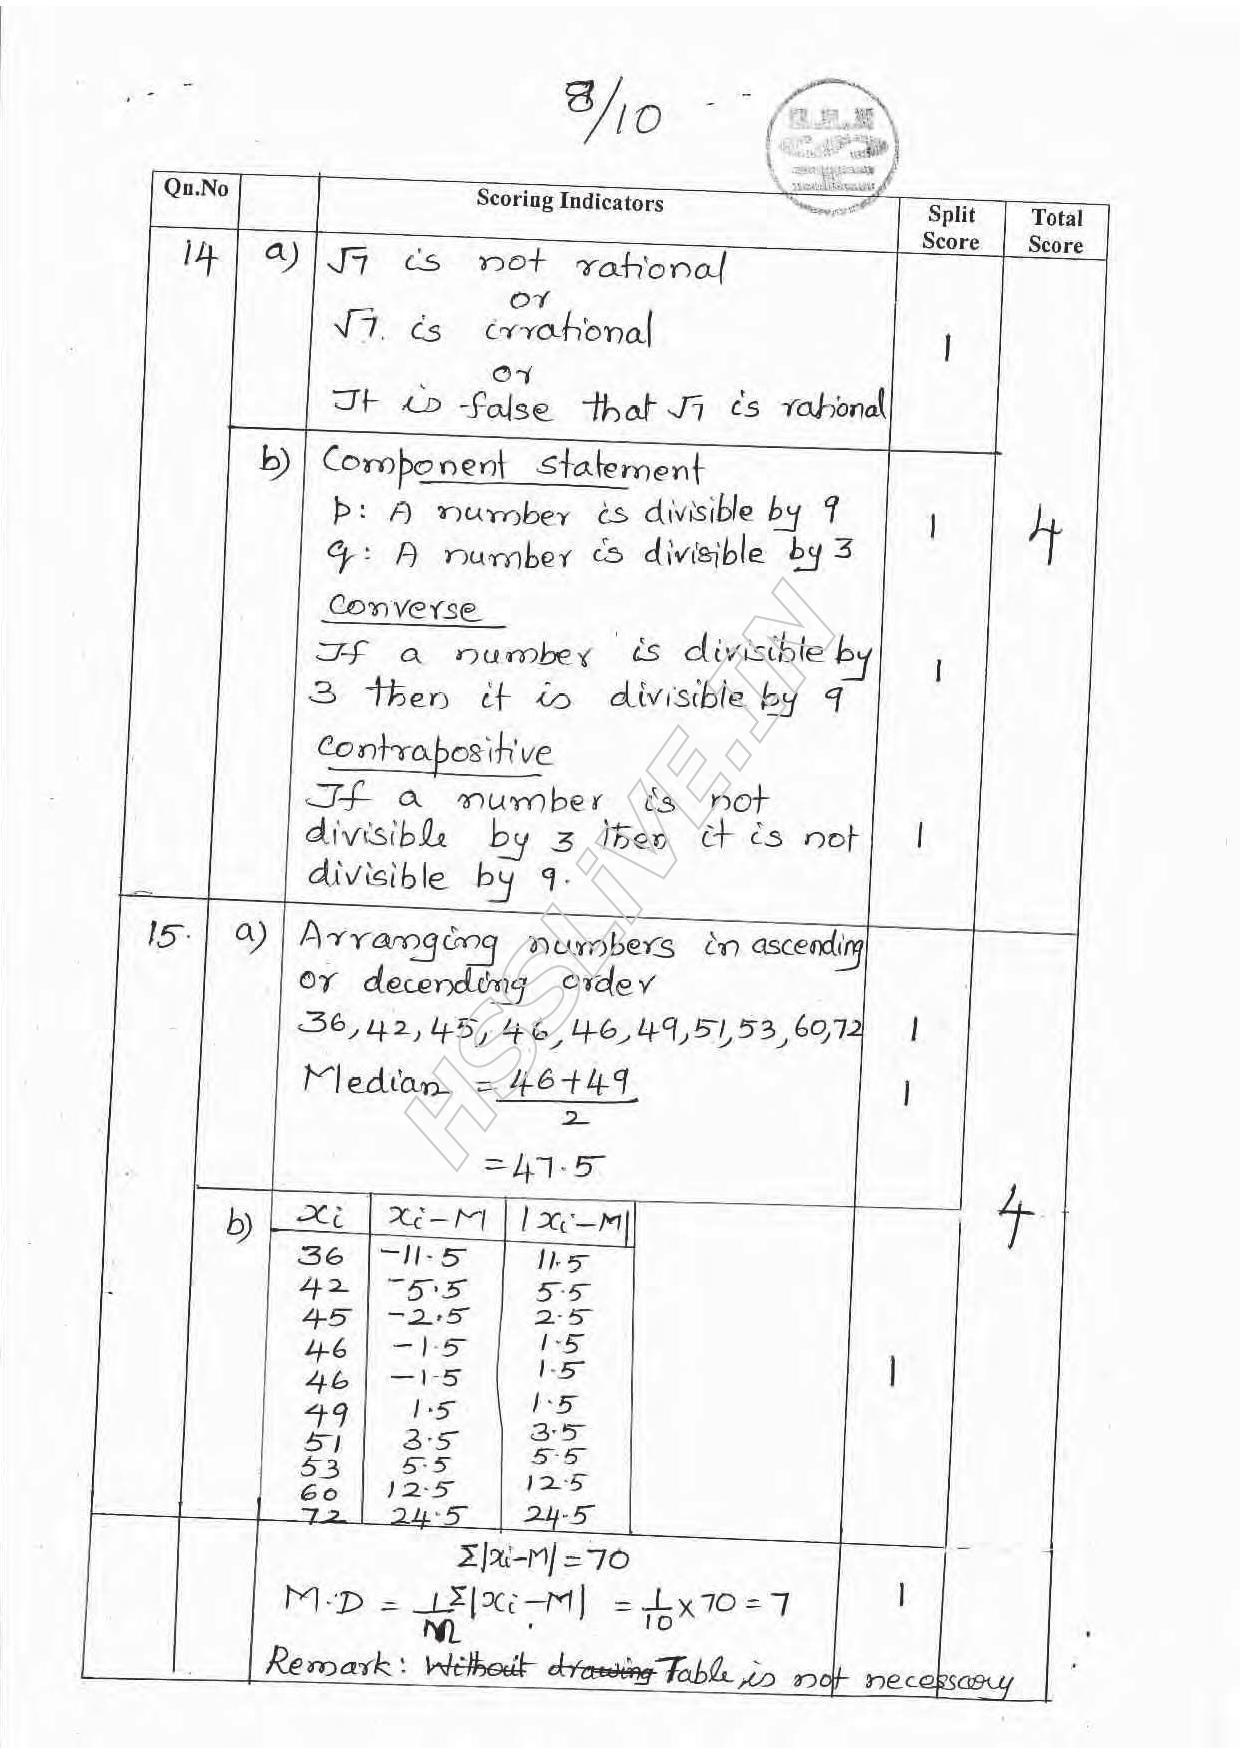 8/10
Qn.No Scoring Indicators Split Score Total Score
14 a) √7 is not rational
or
√7. is irrational
or
It is false that √7 is rational
1
b) Component statement
p: A number is divisible by 9
q: A number is divisible by 3
1
4
Converse
If a number is divisible by
3 then it is divisible by 9
1
Contrapositive
If a number is not
divisible by 3 then it is not
divisible by 9.
1
15. a) Arranging numbers in ascending
or decending order
36, 42, 45, 46, 46, 49, 51, 53, 60, 72
1
Median = 46+49 / 2
1
= 47.5
4
b) xi xi-M |xi-M|
36 -11.5 11.5
42 -5.5 5.5
45 -2.5 2.5
46 -1.5 1.5
46 -1.5 1.5
49 1.5 1.5
51 3.5 3.5
53 5.5 5.5
60 12.5 12.5
72 24.5 24.5
1
Σ|xi-M| = 70
M.D = 1/n Σ|xi-M| = 1/10 x 70 = 7
1
Remark: Without drawing Table is not necessary
HSSLiVE.IN